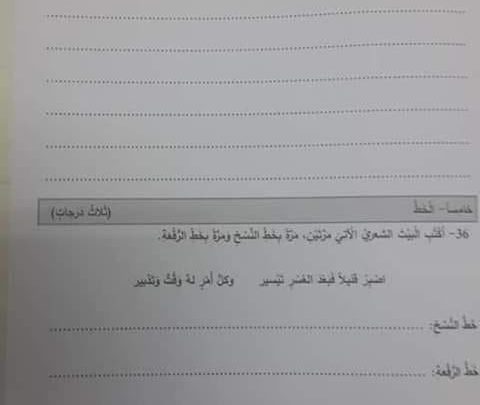 خامسا- الخطّ (ثلاث درجات)
36- أكتب البيت الشعري الآتي مرّتين، مرّة بخطّ النّسخ ومرّة بخطّ الرّقعة.
اصبر قليلاً فبعد العسر تيسير وكلّ أمر له وقت وتدبير
خطّ النّسخ:
خطّ الرّقعة: